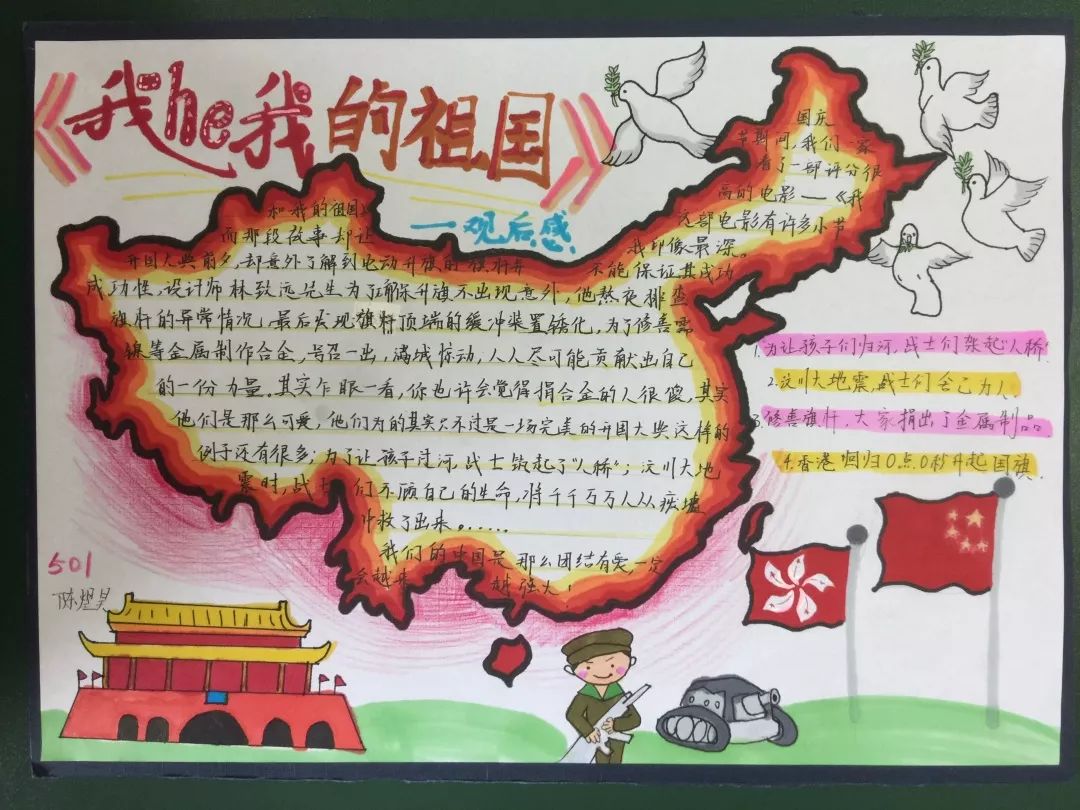 《我he我的祖国》
一观后感
国庆
节期间,我们一家
看了一部评分很
高的电影——《我
和我的祖国》
这部电影有许多小节
而那段故事却让
我印像最深。
开国大典前夕,却意外了解到电动升旗的旗杆并
不能保证其成功
成功性,设计师林致远先生为了确保升旗不出现意外,他熬夜排查
旗杆的异常情况,最后发现旗杆顶端的缓冲装置锈化,为了修善需
镍等金属制作合金,号召一出,满城惊动,人人尽可能贡献出自己
的一份力量。其实乍眼一看,你也许会觉得捐合金的人很傻,其实
他们是那么可爱,他们为的其实只不过是一场完美的开国大典这样的
例子还有很多:为了让孩子过河,战士筑起了“人桥”;汶川大地
震时,战士们不顾自己的生命,将千千万万人从废墟
中救了出来。......
我们的中国是那么团结有爱一定
会越来越强大!
1.为让孩子们归河,战士们架起“人桥”
2.汶川大地震,战士们舍己为人
3.修善旗杆,大家捐出了金属制品.
4.香港回归0点0秒升起国旗.
501